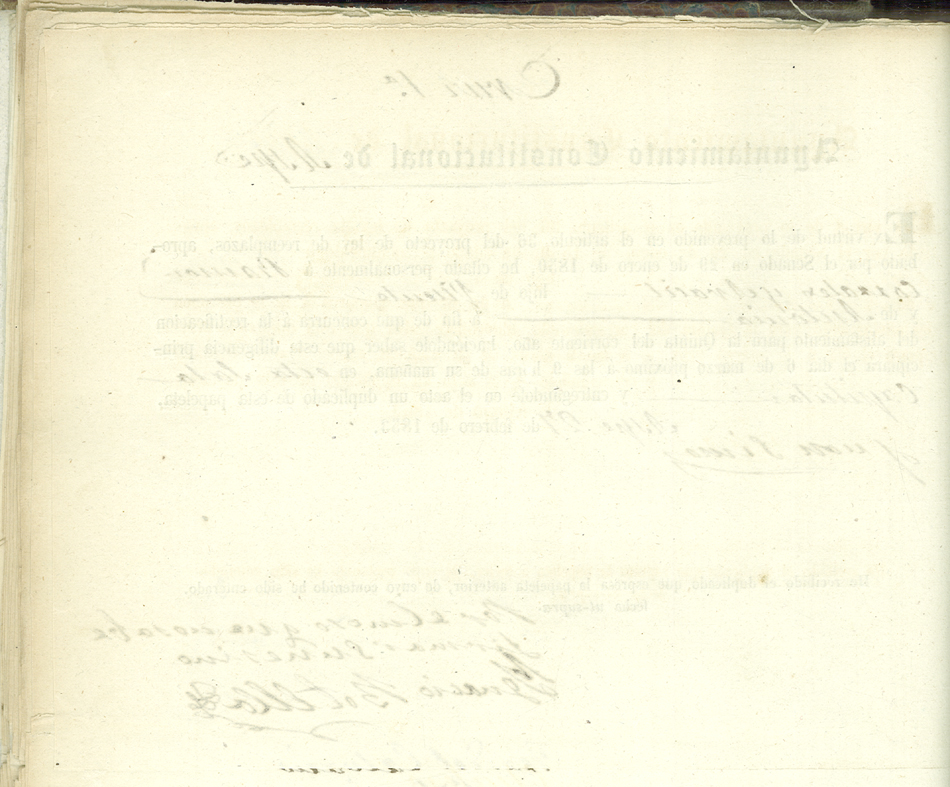 Cruz 1.ª
Ayuntamiento Constitucional de Aspe
En virtud de lo prevenido en el artículo 56 del proyecto de ley de reemplazos, apro-
bado por el Senado en 29 de enero de 1850, he citado personalmente á Ramon
Gonzalez hijo de
y de Antonia á fin de que concurra á la rectificacion
del alistamiento para la Quinta del corriente año, haciéndole saber que esta diligencia prin-
cipiará el dia 6 de marzo próximo á las 9 horas de su mañana, en esta Sala
Capitular y entregándole en el acto un duplicado de esta papeleta.
Aspe 27 de febrero de 1853.
Juan
He recibido el duplicado, que espresa la papeleta anterior, de cuyo contenido he sido enterado.
fecha ut-supra.
Por el moso que no sabe
firmar su vecino
Ignacio Botella